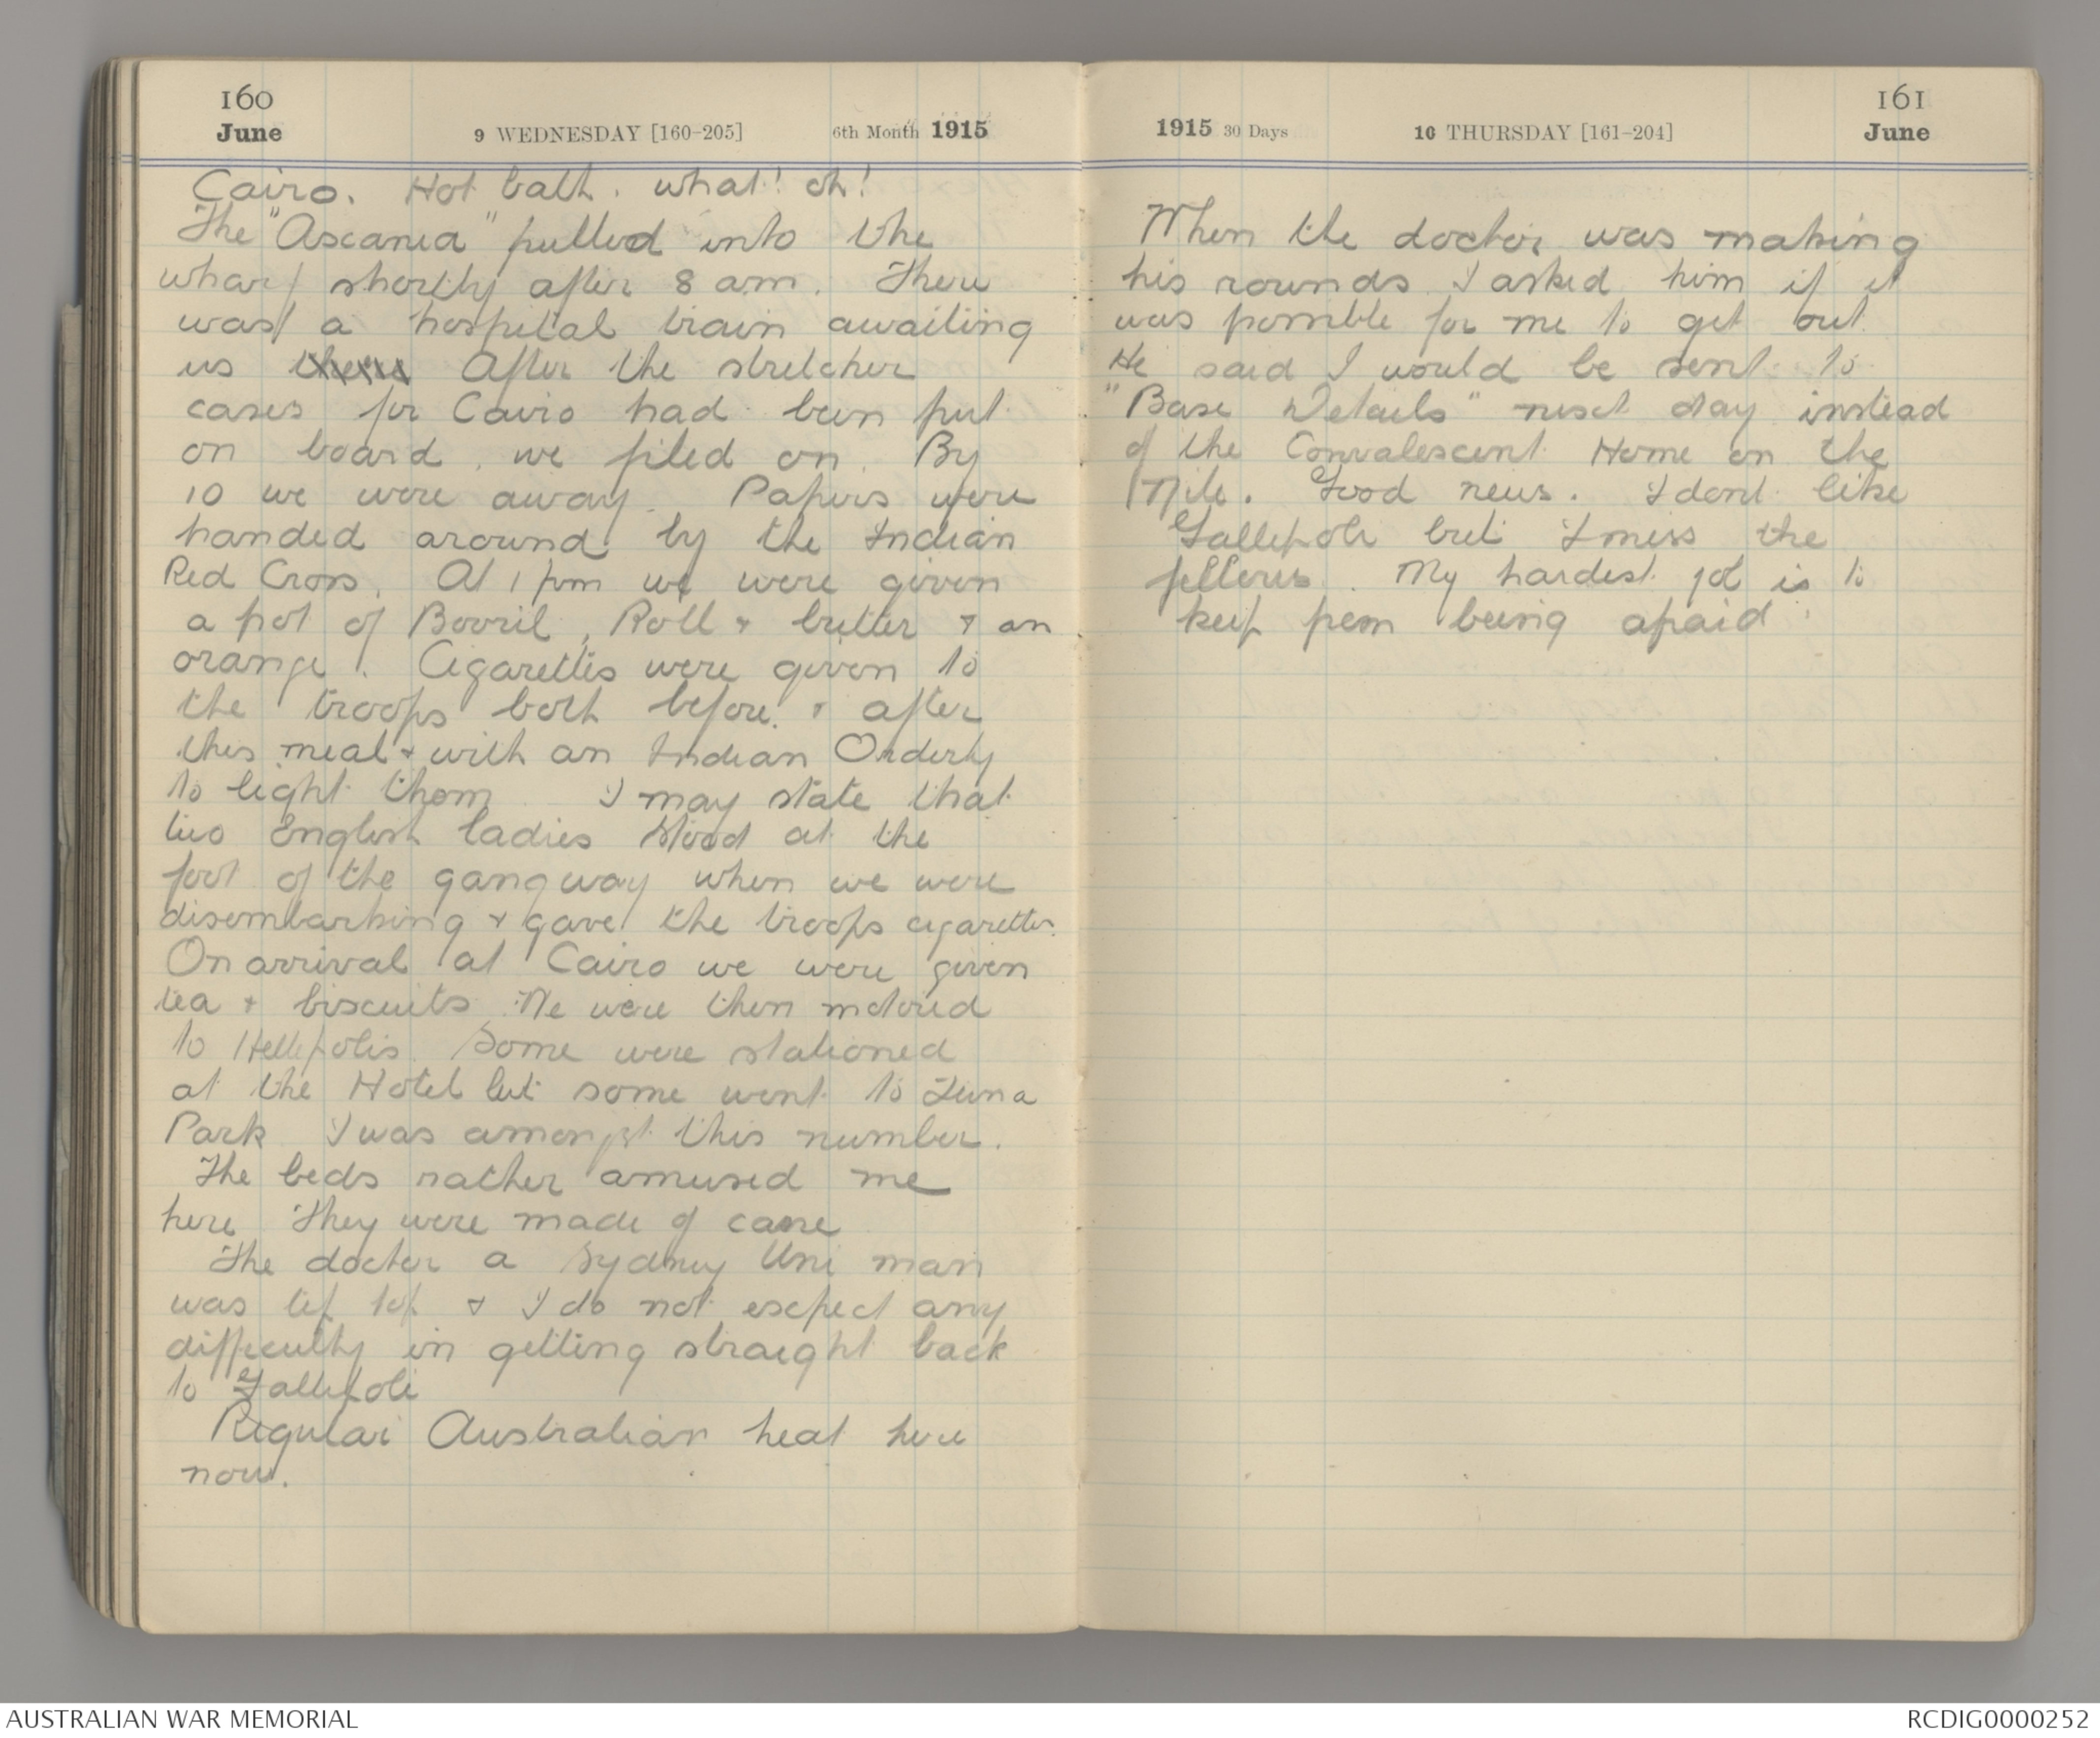 160
June
9 WEDNESDAY [160-205]
6th Month 1915
Cairo. Hot bath. what! oh!
The "Ascania" pulled into the
wharf shortly after 8 am. There
was a hospital train awaiting
us there After the stretcher
cases for Cairo had been put
on board, we filed on. By
10 we were away. Papers were
handed around by the Indian
Red Cross. At 1 pm we were given
a pot of Bovril, Roll & butter & an
orange. Cigarettes were given to
the troops both before & after
this meal & with an Indian Orderly
to light them I may state that
two English ladies stood at the
foot of the gangway when we were
disembarking & gave the troops cigarettes.
On arrival at Cairo we were given
tea & biscuits. We were then motored
to Hellipolis. Some were stationed
at the Hotel but some went to Luna
Park I was amongst this number.
The beds rather amused me
here They were made of cane
The doctor a Sydney Uni man
was tip top & I do not expect any
difficulty in getting straight back
to Gallipoli
Regular Australian heat here
now.
1915 30 Days
10 THURSDAY [161-204]
161
June
When the doctor was making
his rounds I asked him if it
was possible for me to get out.
He said I would be sent to
"Base Details" next day instead
of the Convalescent Home on the
Nile. Good news. I dont like
Gallipoli but I miss the
fellows. My hardest job is to
keep from being afraid.
AUSTRALIAN WAR MEMORIAL
RCDIG0000252